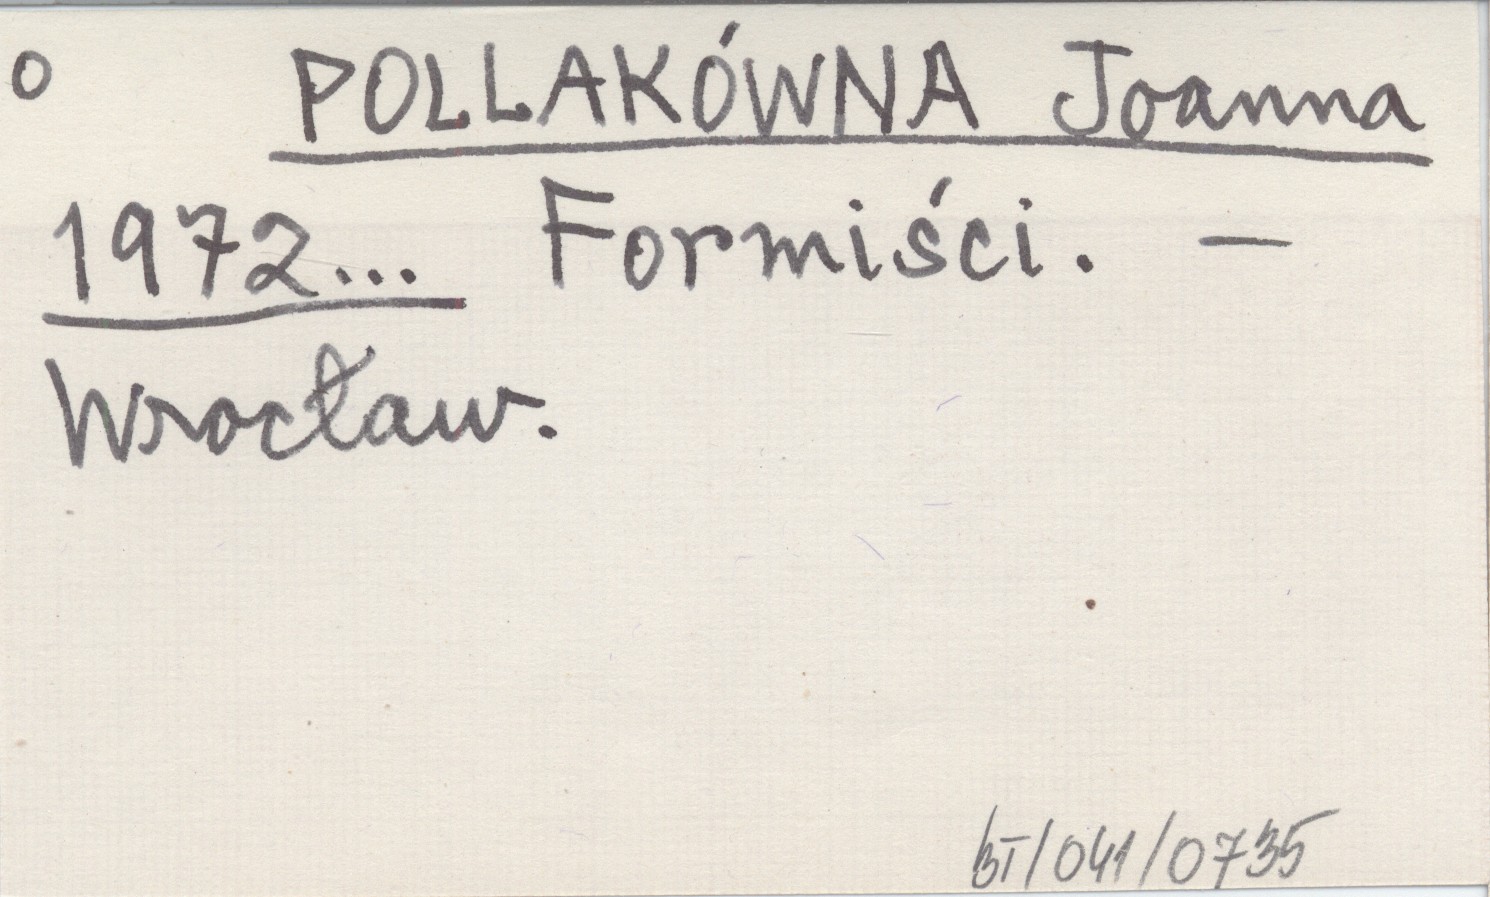 o POLLAKÓWNA Joanna
1972... Formiści. —
Wrocław.
bT/041/0735